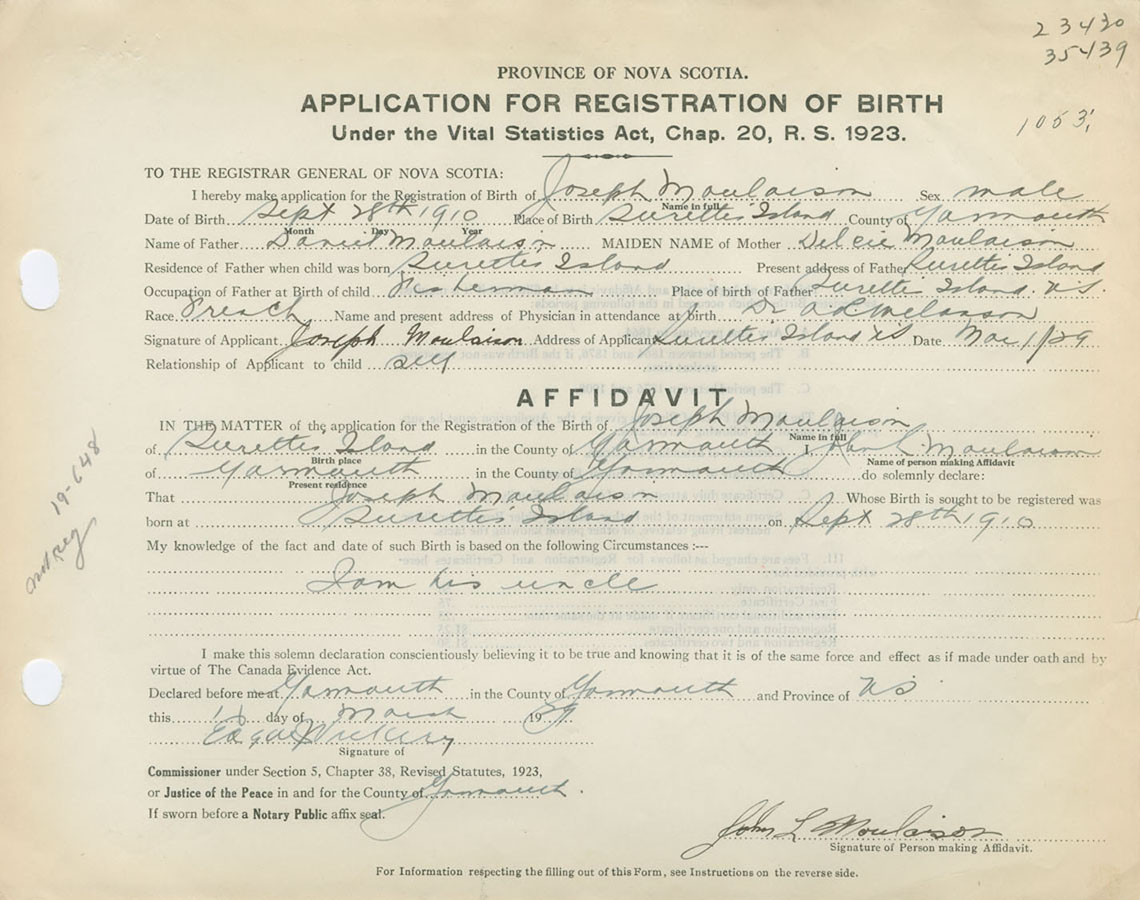 23430
35439
1053
PROVINCE OF NOVA SCOTIA.
APPLICATION FOR REGISTRATION OF BIRTH
Under the Vital Statistics Act, Chap. 20, R. S. 1923.
TO THE REGISTRAR GENERAL OF NOVA SCOTIA:
I hereby make application for the Registration of Birth of Joseph Moulaison Sex male
Name in full
Date of Birth Sept 28th 1910 Place of Birth Surettes Island County of Yarmouth
Month Day Year
Name of Father Daniel Moulaison MAIDEN NAME of Mother Delcie Moulaison
Residence of Father when child was born Surettes Island Present address of Father Surettes Island
Occupation of Father at Birth of child Fisherman Place of birth of Father Surettes Island N.S.
Race French Name and present address of Physician in attendance at birth Dr.
Signature of Applicant Joseph Moulaison Address of Applicant Surettes Island NS Date Mar 1/29
Relationship of Applicant to child self
AFFIDAVIT
IN THE MATTER of the application for the Registration of the Birth of Joseph Moulaison
Name in full
of Surettes Island in the County of Yarmouth I, John L Moulaison
Birth place Name of person making Affidavit
of Yarmouth in the County of Yarmouth do solemnly declare:
Present residence
That Joseph Moulaison Whose Birth is sought to be registered was
born at Surettes Island on Sept 28th 1910
My knowledge of the fact and date of such Birth is based on the following Circumstances :---
I am his uncle
I make this solemn declaration conscientiously believing it to be true and knowing that it is of the same force and effect as if made under oath and by
virtue of The Canada Evidence Act.
Declared before me at Yarmouth in the County of Yarmouth and Province of NS
this day of March 1929
Edgar Vickery
Signature of
Commissioner under Section 5, Chapter 38, Revised Statutes, 1923,
or Justice of the Peace in and for the County of Yarmouth.
If sworn before a Notary Public affix seal.
John L Moulaison
Signature of Person making Affidavit.
For Information respecting the filling out of this Form, see Instructions on the reverse side.
not reg 19-648